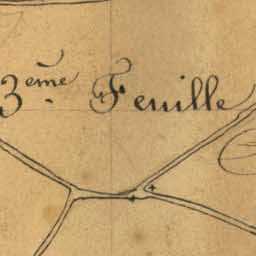 3eme Feuille